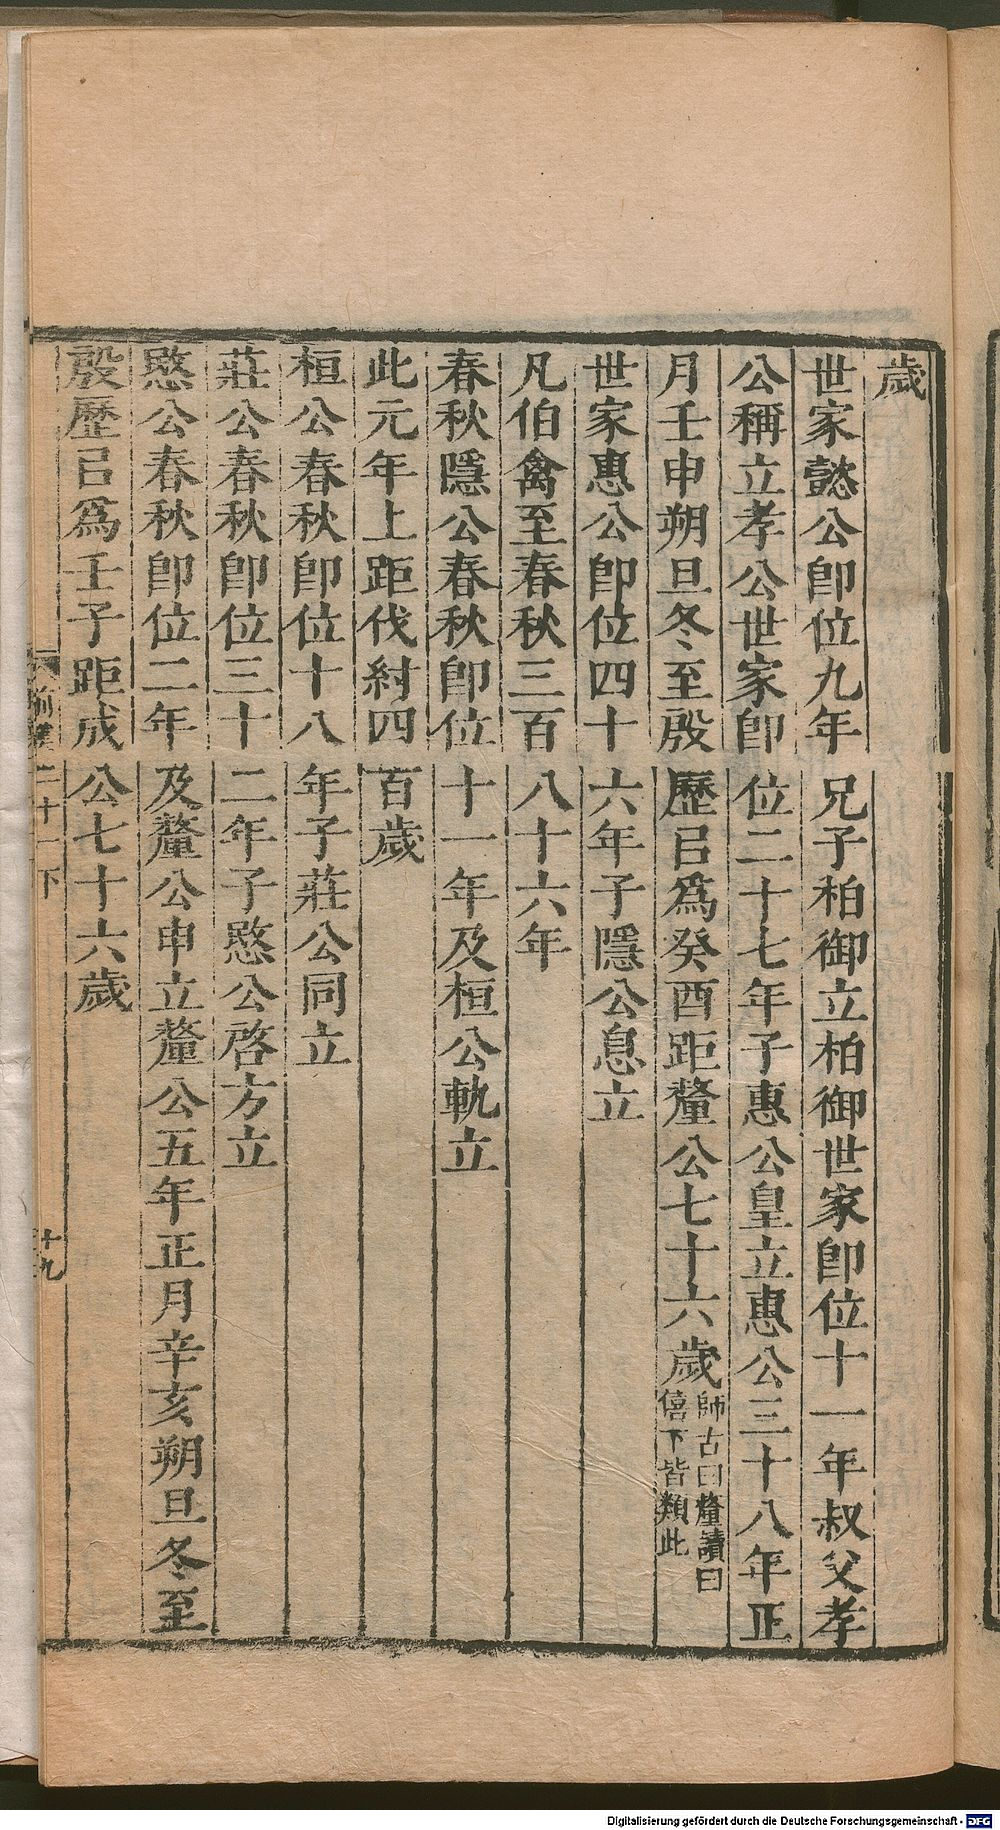 歲
世家懿公卽位九年兄子柏御立柏御世家卽位十一年叔父孝
公稱立孝公世家卽位二十七年子惠公皇立惠公三十八年正
月壬申朔旦冬至殷歷㠯爲癸酉距釐公七十六歲師古曰釐讀曰
僖下皆類此
世家惠公卽位四十六年子隱公息立
凡伯禽至春秋三百八十六年
春秋隱公春秋卽位十一年及桓公軌立
此元年上距伐紂四百歲
桓公春秋卽位十八年子莊公同立
莊公春秋卽位三十二年子愍公啓方立
愍公春秋卽位二年及釐公申立釐公五年正月辛亥朔旦冬至
殷歷㠯爲壬子距成公七十六歲
前漢二十一下
十九
Digitalisierung gefördert durch die Deutsche Forschungsgemeinschaft - DFG